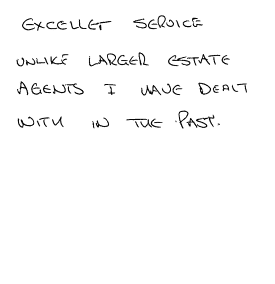 EXCELLET SERVICE
UNLIKE LARGER ESTATE
AGENTS I HAVE DEALT
WITH IN THE PAST.